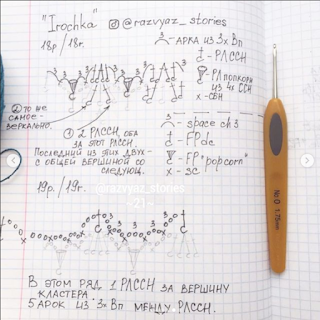 "Irochka" @razvyaz_stories
18р/18r.
3 - АРКА ИЗ 3х Вп
- РЛССН
- РЛ ПОПКОРН
ИЗ 4х ССН
х - СБН
② ТО ЖЕ
САМОЕ -
ЗЕРКАЛЬНО.
① 2 РЛССН, ОБА
ЗА ЭТОТ РЛССН.
ПОСЛЕДНИЙ ИЗ ЭТИХ ДВУХ -
С ОБЩЕЙ ВЕРШИНОЙ СО
СЛЕДУЮЩ.
3 - space ch3
- FPdc
- FP "popcorn"
x - sc
19р./19r.
@razvyaz_stories
~21~
В ЭТОМ РЯД. 1 РЛССН ЗА ВЕРШИНУ
КЛАСТЕРА.
5 АРОК ИЗ 3х Вп МЕЖДУ РЛССН.
№0 1.75mm